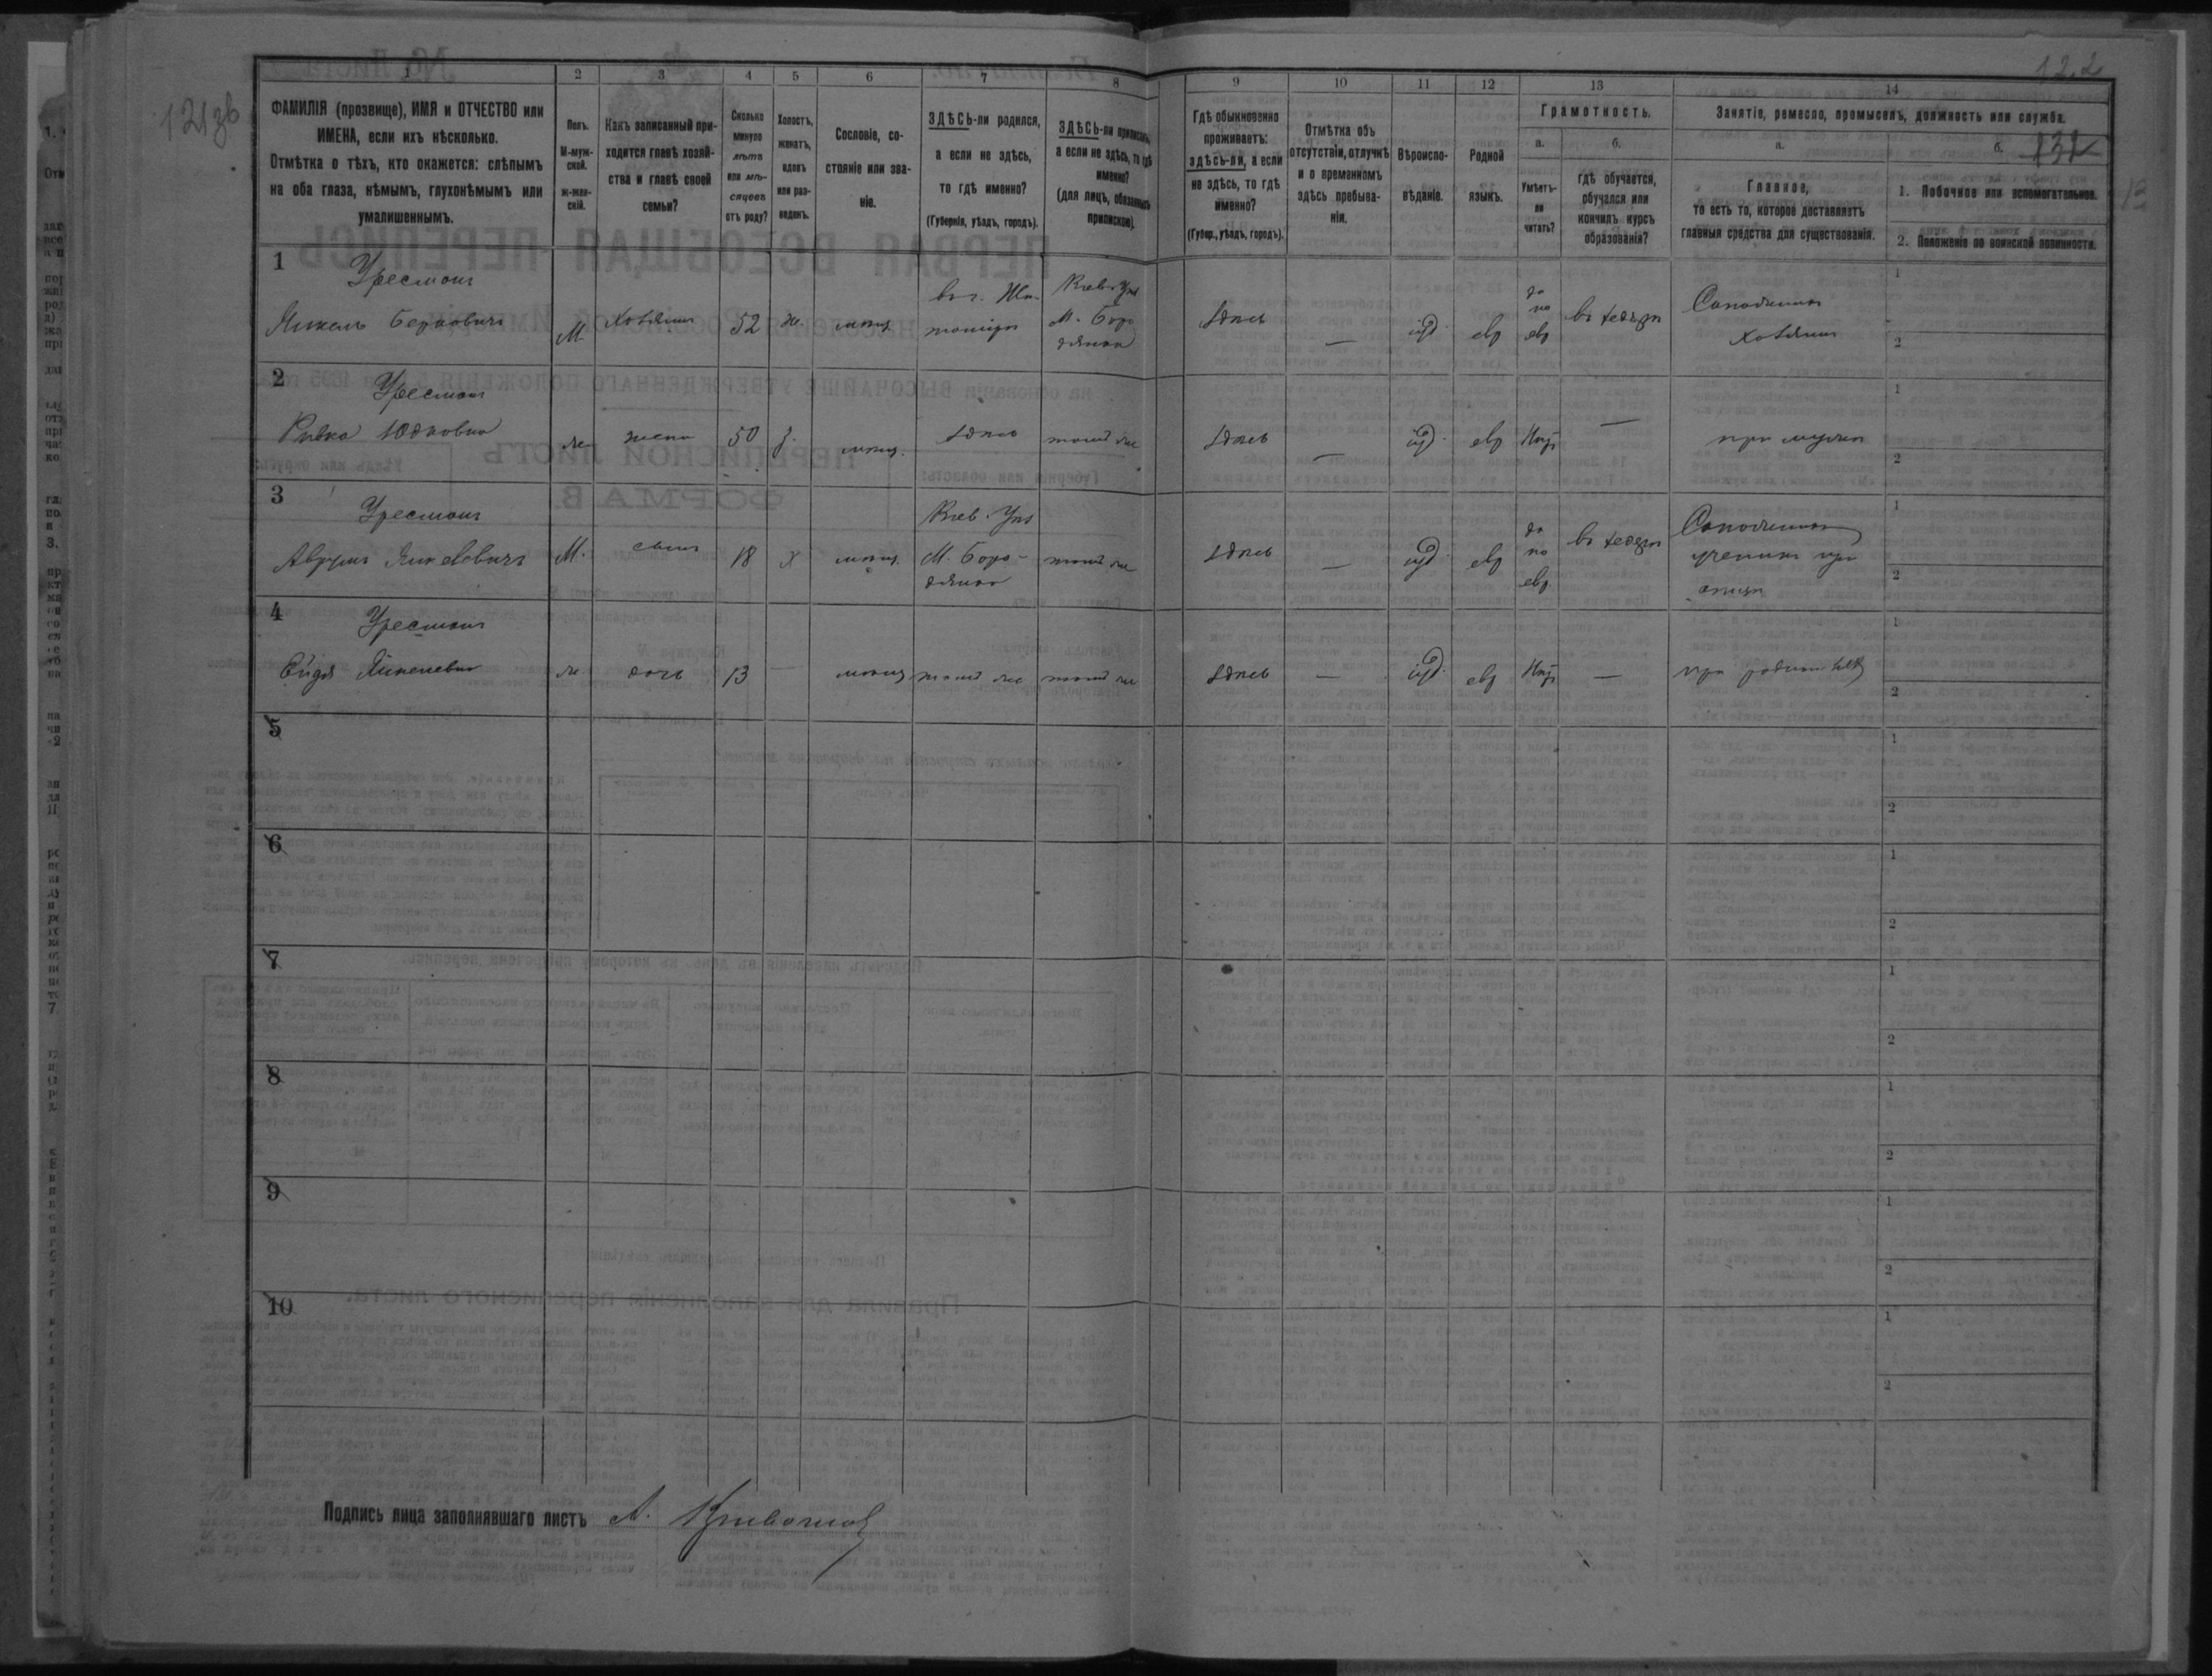 121зв
122
132
1
2
3
4
5
6
7
8
9
10
11
12
13
14
ФАМИЛІЯ (прозвище), ИМЯ и ОТЧЕСТВО или
ИМЕНА, если ихъ нѣсколько.
Отмѣтка о тѣхъ, кто окажется: слѣпымъ
на оба глаза, нѣмымъ, глухонѣмымъ или
умалишеннымъ.
Полъ.
М-муж-
ской.
ж-жен-
скій.
Какъ записанный при-
ходится главѣ хозяй-
ства и главѣ своей
семьи?
Сколько
минуло
лѣтъ
или мѣ-
сяцевъ
отъ роду?
Холостъ,
женатъ,
вдовъ
или раз-
веденъ.
Сословіе, со-
стояніе или зва-
ніе.
ЗДѢСЬ-ли родился,
а если не здѣсь,
то гдѣ именно?
(Губернія, уѣздъ, городъ).
ЗДѢСЬ-ли приписанъ,
а если не здѣсь, то гдѣ
именно?
(для лицъ, обязанныхъ
припискою).
Гдѣ обыкновенно
проживаетъ:
здѣсь-ли, а если
не здѣсь, то гдѣ
именно?
(Губер., уѣздъ, городъ).
Отмѣтка объ
отсутствіи, отлучкѣ
и о временномъ
здѣсь пребыва-
ніи.
Вѣроиспо-
вѣданіе.
Родной
языкъ.
Грамотность.
а.
Умѣетъ-
ли
читать?
б.
гдѣ обучается,
обучался или
кончилъ курсъ
образованія?
Занятіе, ремесло, промыселъ, должность или служба.
а.
Главное,
то есть то, которое доставляетъ
главныя средства для существованія.
б.
1. Побочное или вспомогательное.
2. Положеніе по воинской повинности.
1
Уресманъ
Янкель Берковичъ
М.
Хозяинъ
52
ж.
мѣщ.
вол. Жи-
томіръ
Кiев. Уѣз
М. Боро
дянка
здѣсь
—
іуд
евр
да
по
евр
въ хедерѣ
Сапожникъ
хозяинъ
1
2
2
Уресманъ
Ривка Юдковна
ж.
жена
50
з.
мѣщ.
здѣсь
тамъ же
здѣсь
—
іуд.
евр
Нѣт
—
при мужѣ
1
2
3
Уресманъ
Аврумъ Янкелевичъ
М.
сынъ
18
х
мѣщ.
Кiев. Уѣз
М. Боро-
дянка
тамъ же
здѣсь
—
іуд
евр
да
по
евр.
въ хедерѣ
Сапожникъ
ученикъ при
отцѣ
1
2
4
Уресманъ
Янкелевна
ж.
дочь
13
—
мѣщ
тамъ же
тамъ же
здѣсь
—
іуд.
евр
Нѣт
—
при родителяхъ
1
2
5
1
2
6
1
2
7
1
2
8
1
2
9
1
2
10
1
2
Подпись лица заполнявшаго листъ А.